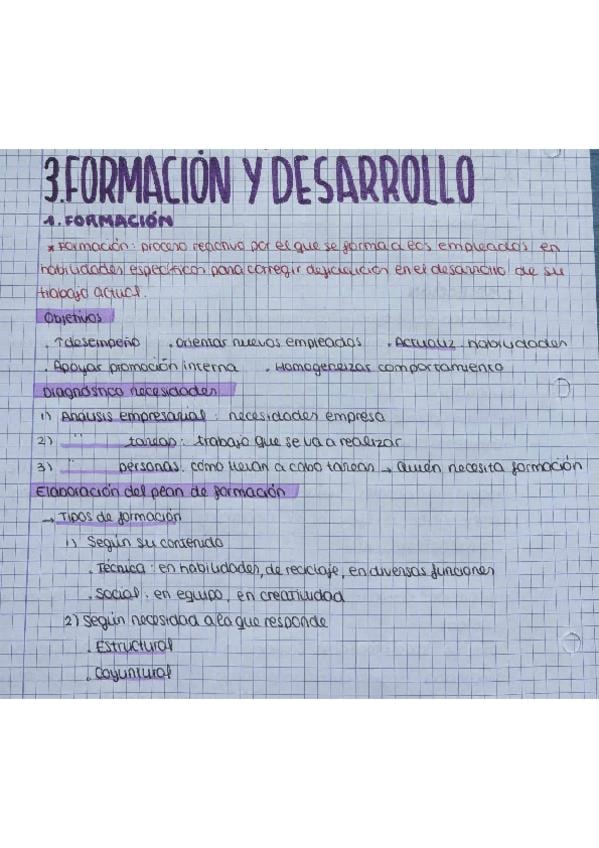 3.FORMACIÓN Y DESARROLLO
1. FORMACIÓN
* Formación: proceso reactivo por el que se forma a los empleados en
habilidades específicas para corregir deficiencias en el desarrollo de su
trabajo actual.
Objetivos
. ↑desempeño . Orientar nuevos empleados . Actualiz. habilidades
. Apoyar promoción interna . Homogeneizar comportamiento
Diagnóstico necesidades
1) Análisis empresarial: necesidades empresa
2) " tareas: trabajo que se va a realizar
3) " personas: cómo llevan a cabo tareas → Quién necesita formación
Elaboración del plan de formación
→ Tipos de formación
1) Según su contenido
. Técnica: en habilidades, de reciclaje, en diversas funciones
. Social: en equipo, en creatividad
2) Según necesidad a la que responde
. Estructural
. Coyuntural